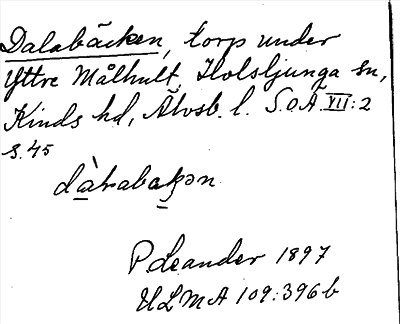 Dalabäcken, torp under
Yttre Målhult Holsljunga sn,
Kinds hd, Älvsb. l. S.O.Ä. VII:2
s. 45
dàhabakən
P Leander 1897
ULMA 109:396 b